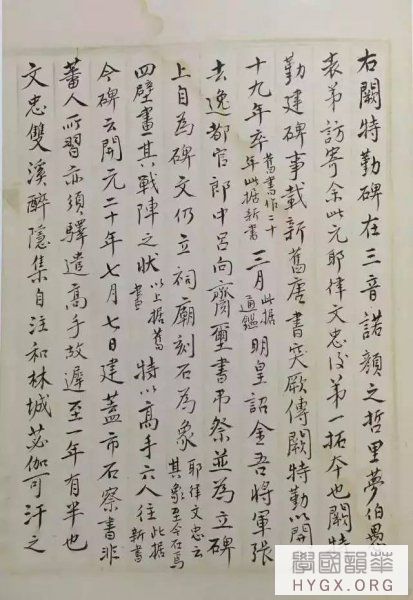 右闕特勤碑在三音諾顏之哲里夢伯愚
表弟訪寄余此元耶律文忠後第一拓本也闕特
勤建碑事載新舊唐書突厥傳闕特勤以開
十九年卒舊書作二十年此據新書三月此據通鑑明皇詔金吾將軍張
去逸都官郎中呂向齎璽書弔祭並為立碑
上自為碑文仍立祠廟刻石為象耶律文忠云其象至今在焉
四壁畫其戰陣之狀以上據舊書特以高手六人往此據新書
今碑云開元二十年七月七日建蓋市石察書非
蕃人所習亦須驛遣高手故遲至一年有半也
文忠雙溪醉隱集自注和林城苾伽可汗之
學國韻華
HYGX.ORG